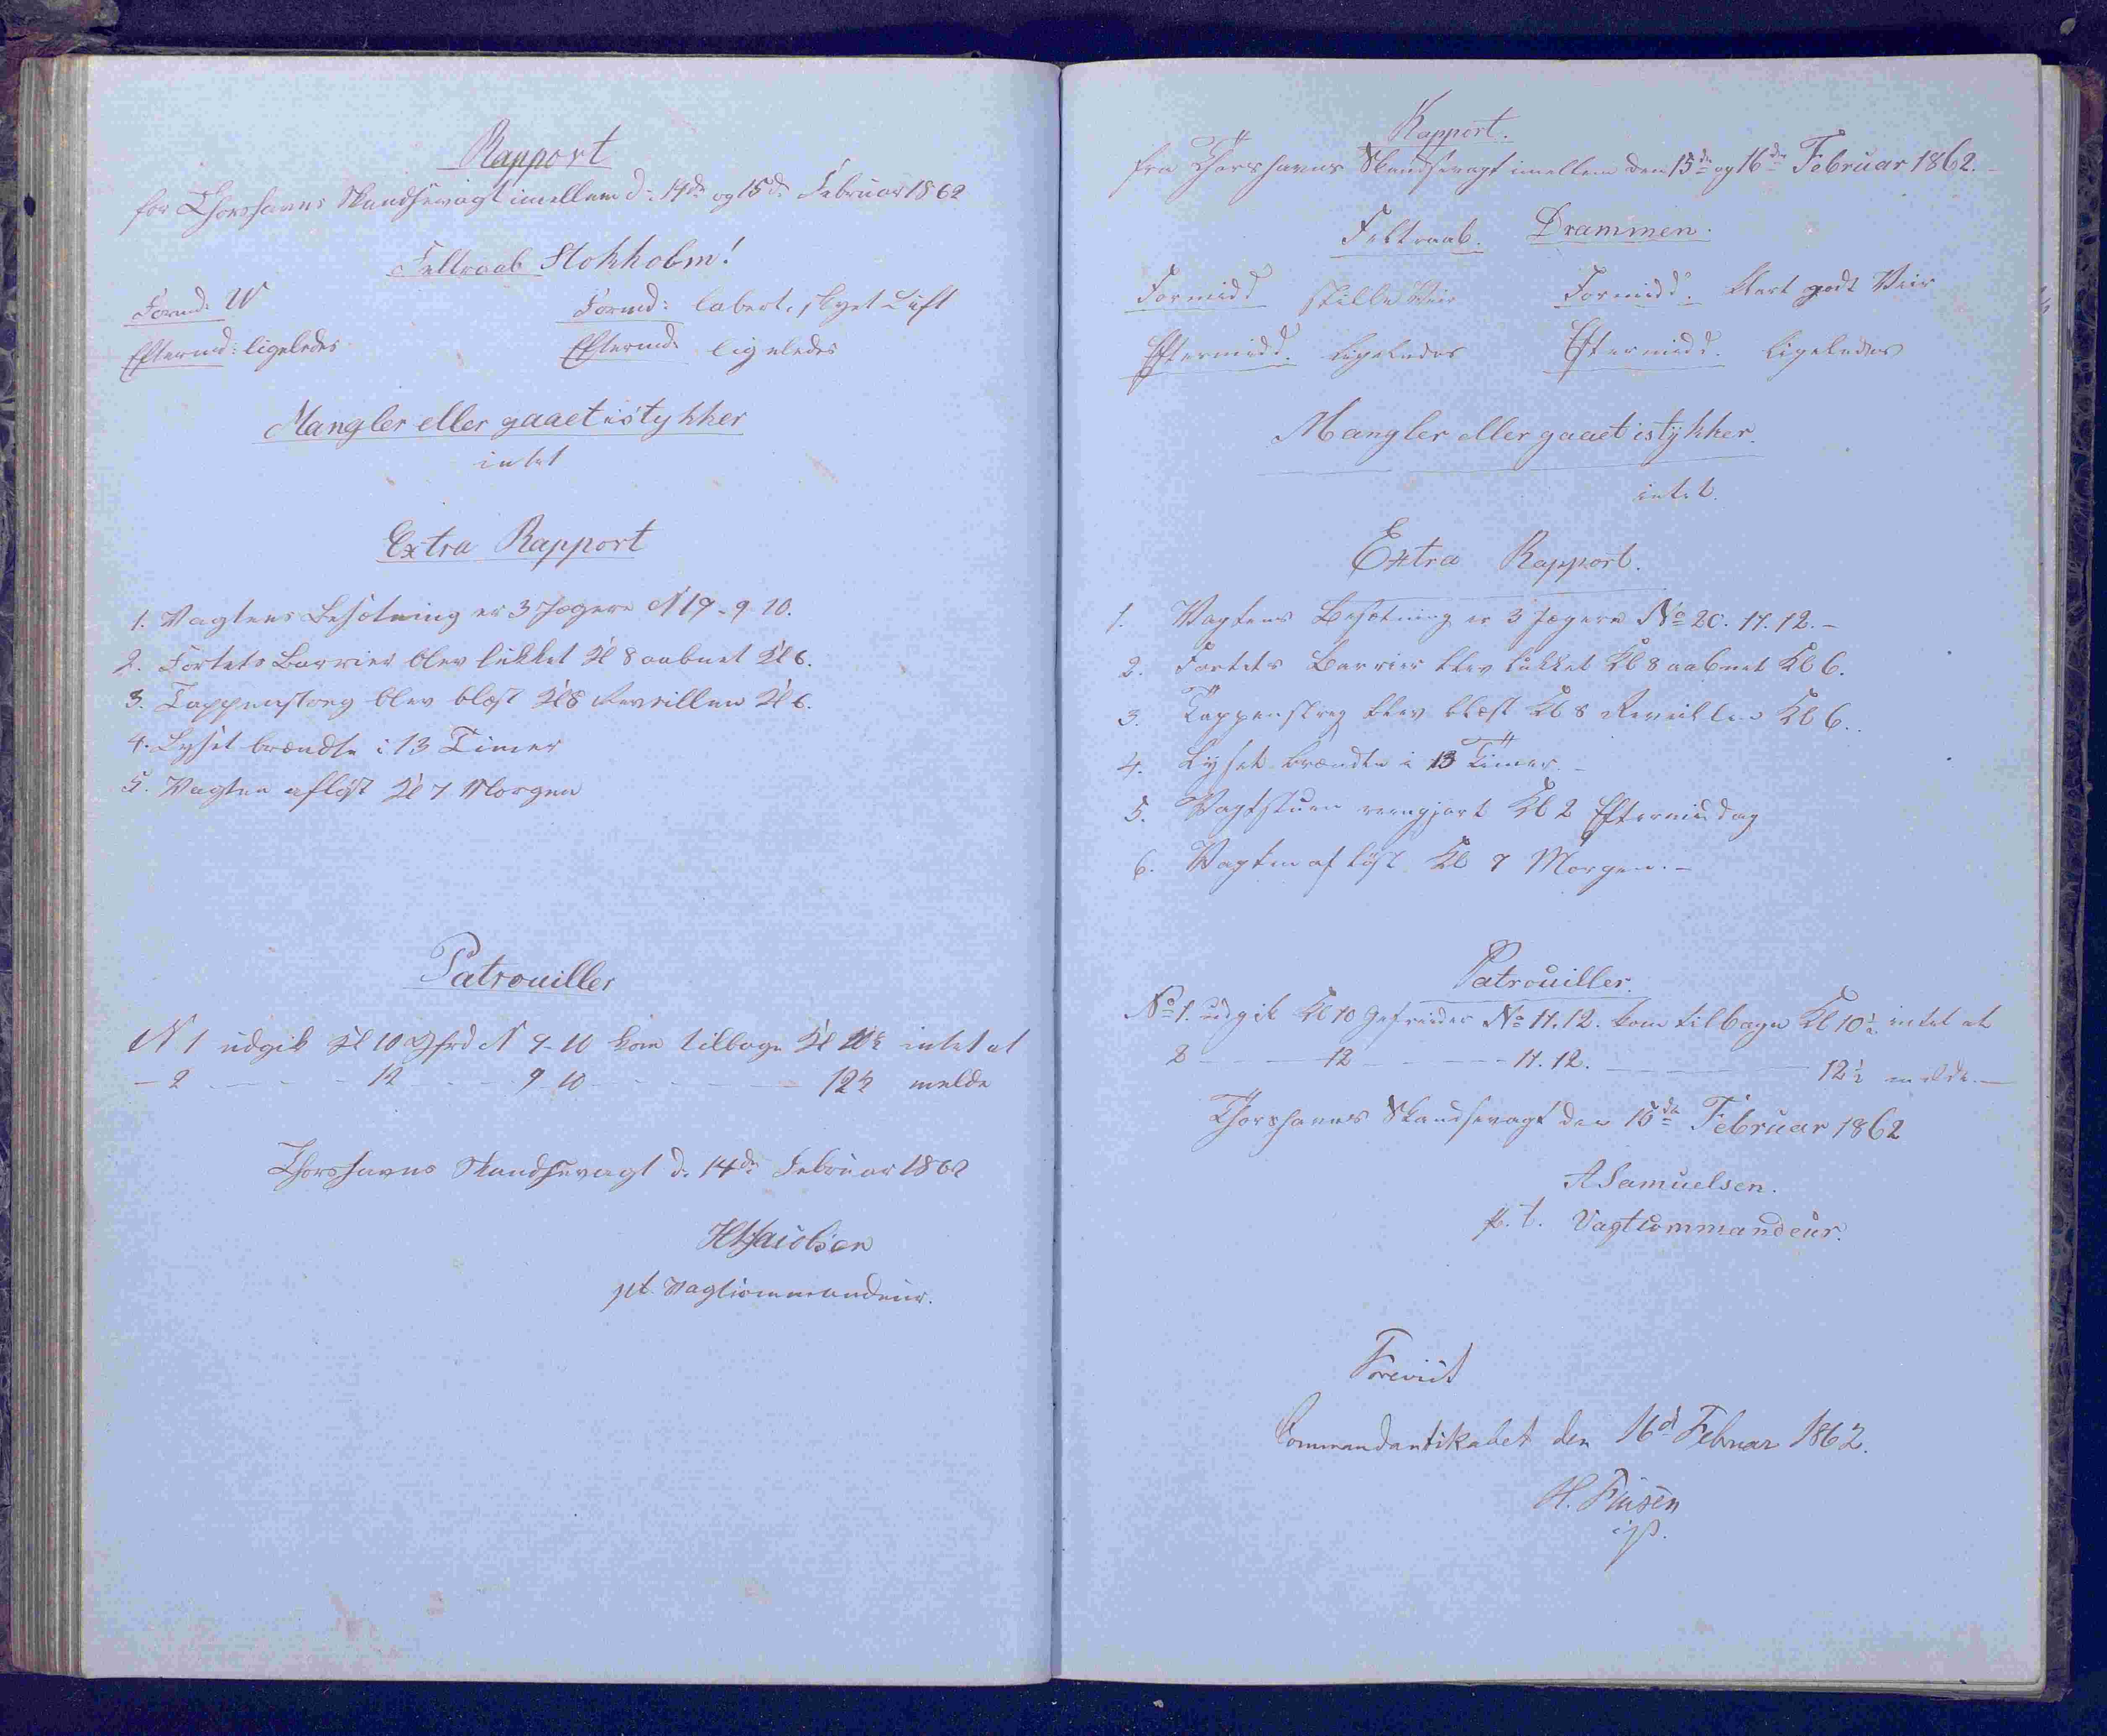 Rapport
for Thorshavns Skandsevagt imellem d: 14de og 15de Februar 1862
Feltraab Stokholm!
Formd: W
Formd: labert, skyet Luft
Eftermd: ligeledes
Eftermd: ligeledes
Mangler eller gaaet istykker
intet
Extra Rapport
1. Vagtens Besætning er 3 Jægere N 19-9-10.
2. Fortets Barrier blev lukket Kl 8 aabnet Kl 6.
3. Tappenstreg blev blæst Kl 8 Reveillen Kl 6.
4. Lyset brændte i 13 Timer
5. Vagten afløst Kl 7 Morgen
Patrouiller
N 1 udgik Kl 10 Gfrd N 9-10 kom tilbage Kl 10½ intet at
- 2 - - - - 12 - - - 9 10 - - - - - 12½ melde
Thorshavns Skandsevagt d: 14de Februar 1862
HJacobsen
pt. Vagtcommandeur.
Rapport.
fra Thorshavns Skandsevagt imellem den 15de og 16de Februar 1862.
Feltraab. Drammen.
Formidd stille Veir
Formidd. klart godt Veir
Eftermidd. ligeledes
Eftermidd. ligeledes
Mangler eller gaaet istykker.
intet.
Extra Rapport.
1. Vagtens Besætning er 3 Jægere No 20. 11. 12. -
2. Fortets Barrier blev lukket Kl 8 aabnet Kl 6.
3. Tappenstreg blev blæst Kl 8 Reveillen Kl 6.
4. Lyset brændte i 13 Timer. -
5. Vagtstuen reengjort Kl 2 Eftermiddag
6. Vagten afløst Kl 7 Morgen. -
Patrouiller.
No 1. udgik Kl 10 Gefreider No 11. 12. kom tilbage Kl 10½ intet at
2 - - - 12 - - - 11. 12. - - - 12½ melde. -
Thorshavns Skandsevagt den 15de Februar 1862
ASamuelsen.
p. t. Vagtcommandeur.
Foreviist
Commandantskabet den 16d Februar 1862.
H. Finsen